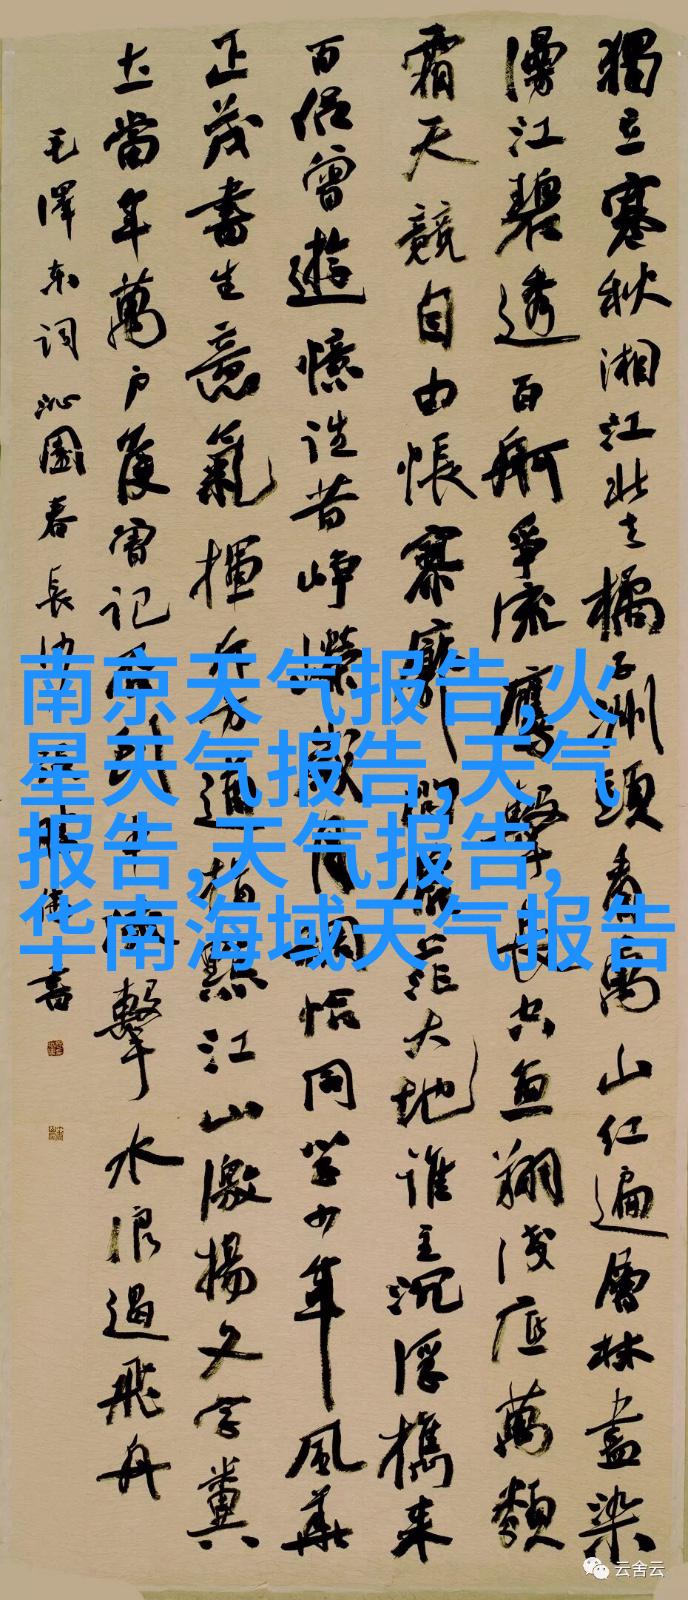 獨立寒秋湘江北去橘子州頭看萬山紅遍層林盡染
漫江碧透百舸爭流鷹擊長空魚翔淺底萬類
霜天競自由悵寥廓問蒼茫大地誰主沉浮攜來
百侶曾遊憶往昔崢嶸歲月稠恰同學少年風華
正茂書生意氣揮斥方遒指點江山激揚文字糞
土當年萬戶侯曾記否到中流擊水浪遏飛舟
毛澤東詞沁園春長沙 書
南京天气报告,火
星天气报告,天气
报告,天气报告,
华南海域天气报告
云舍云